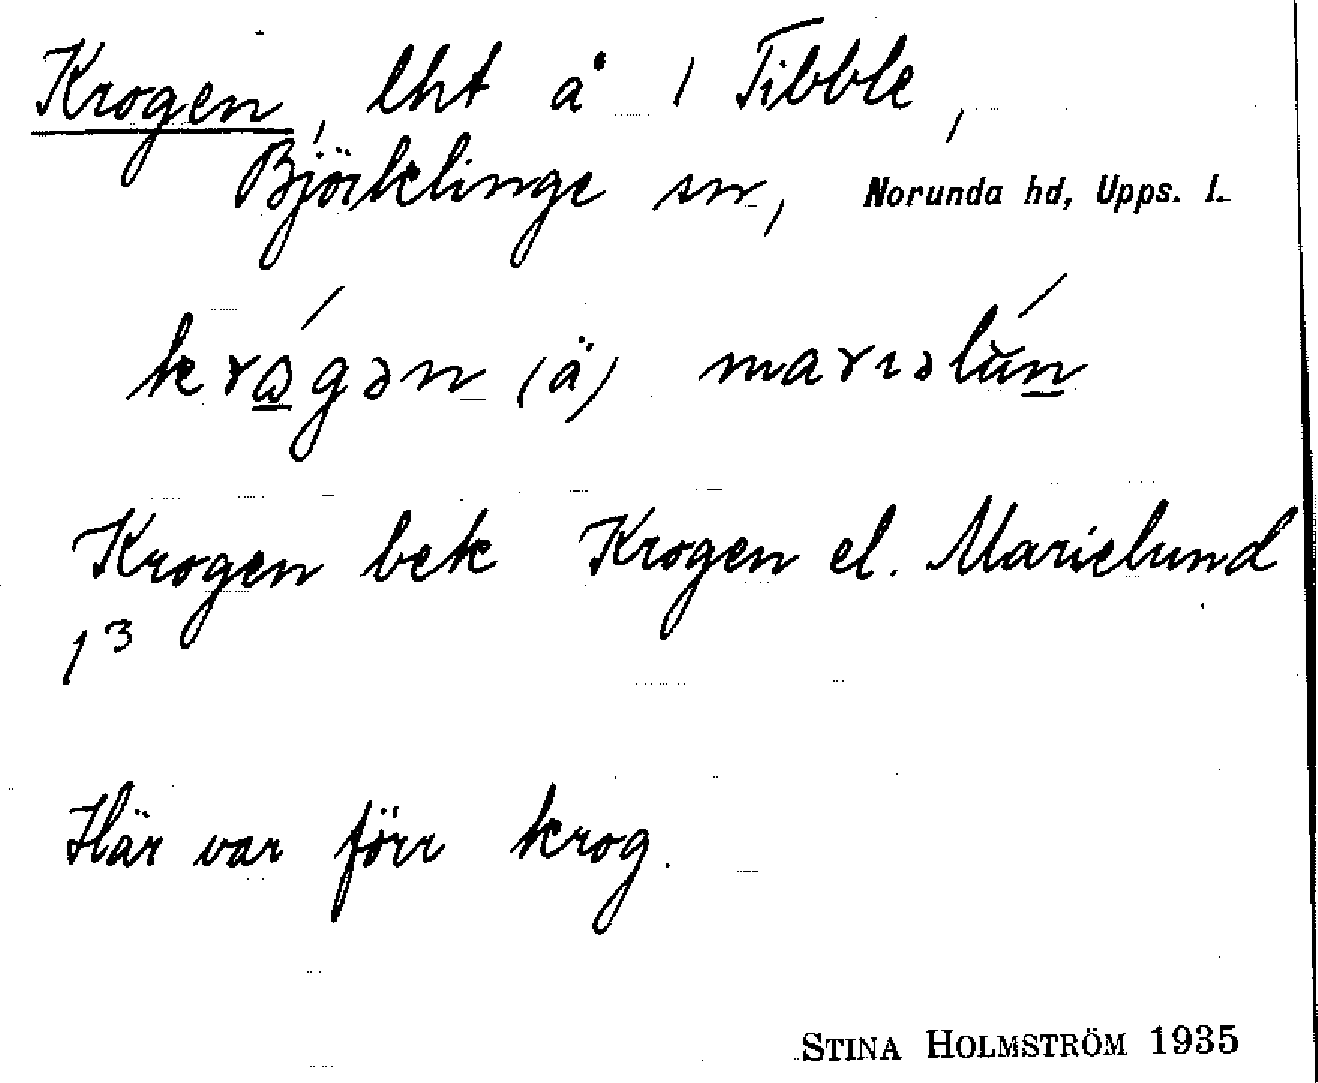 Krogen, lht å 1 Tibble,
Björklinge sn, Norunda hd, Upps. l.
krågən (ä) marıəlŭn
Krogen bek Krogen el. Marielund
1³
Här var förr krog.
STINA HOLMSTRÖM 1935